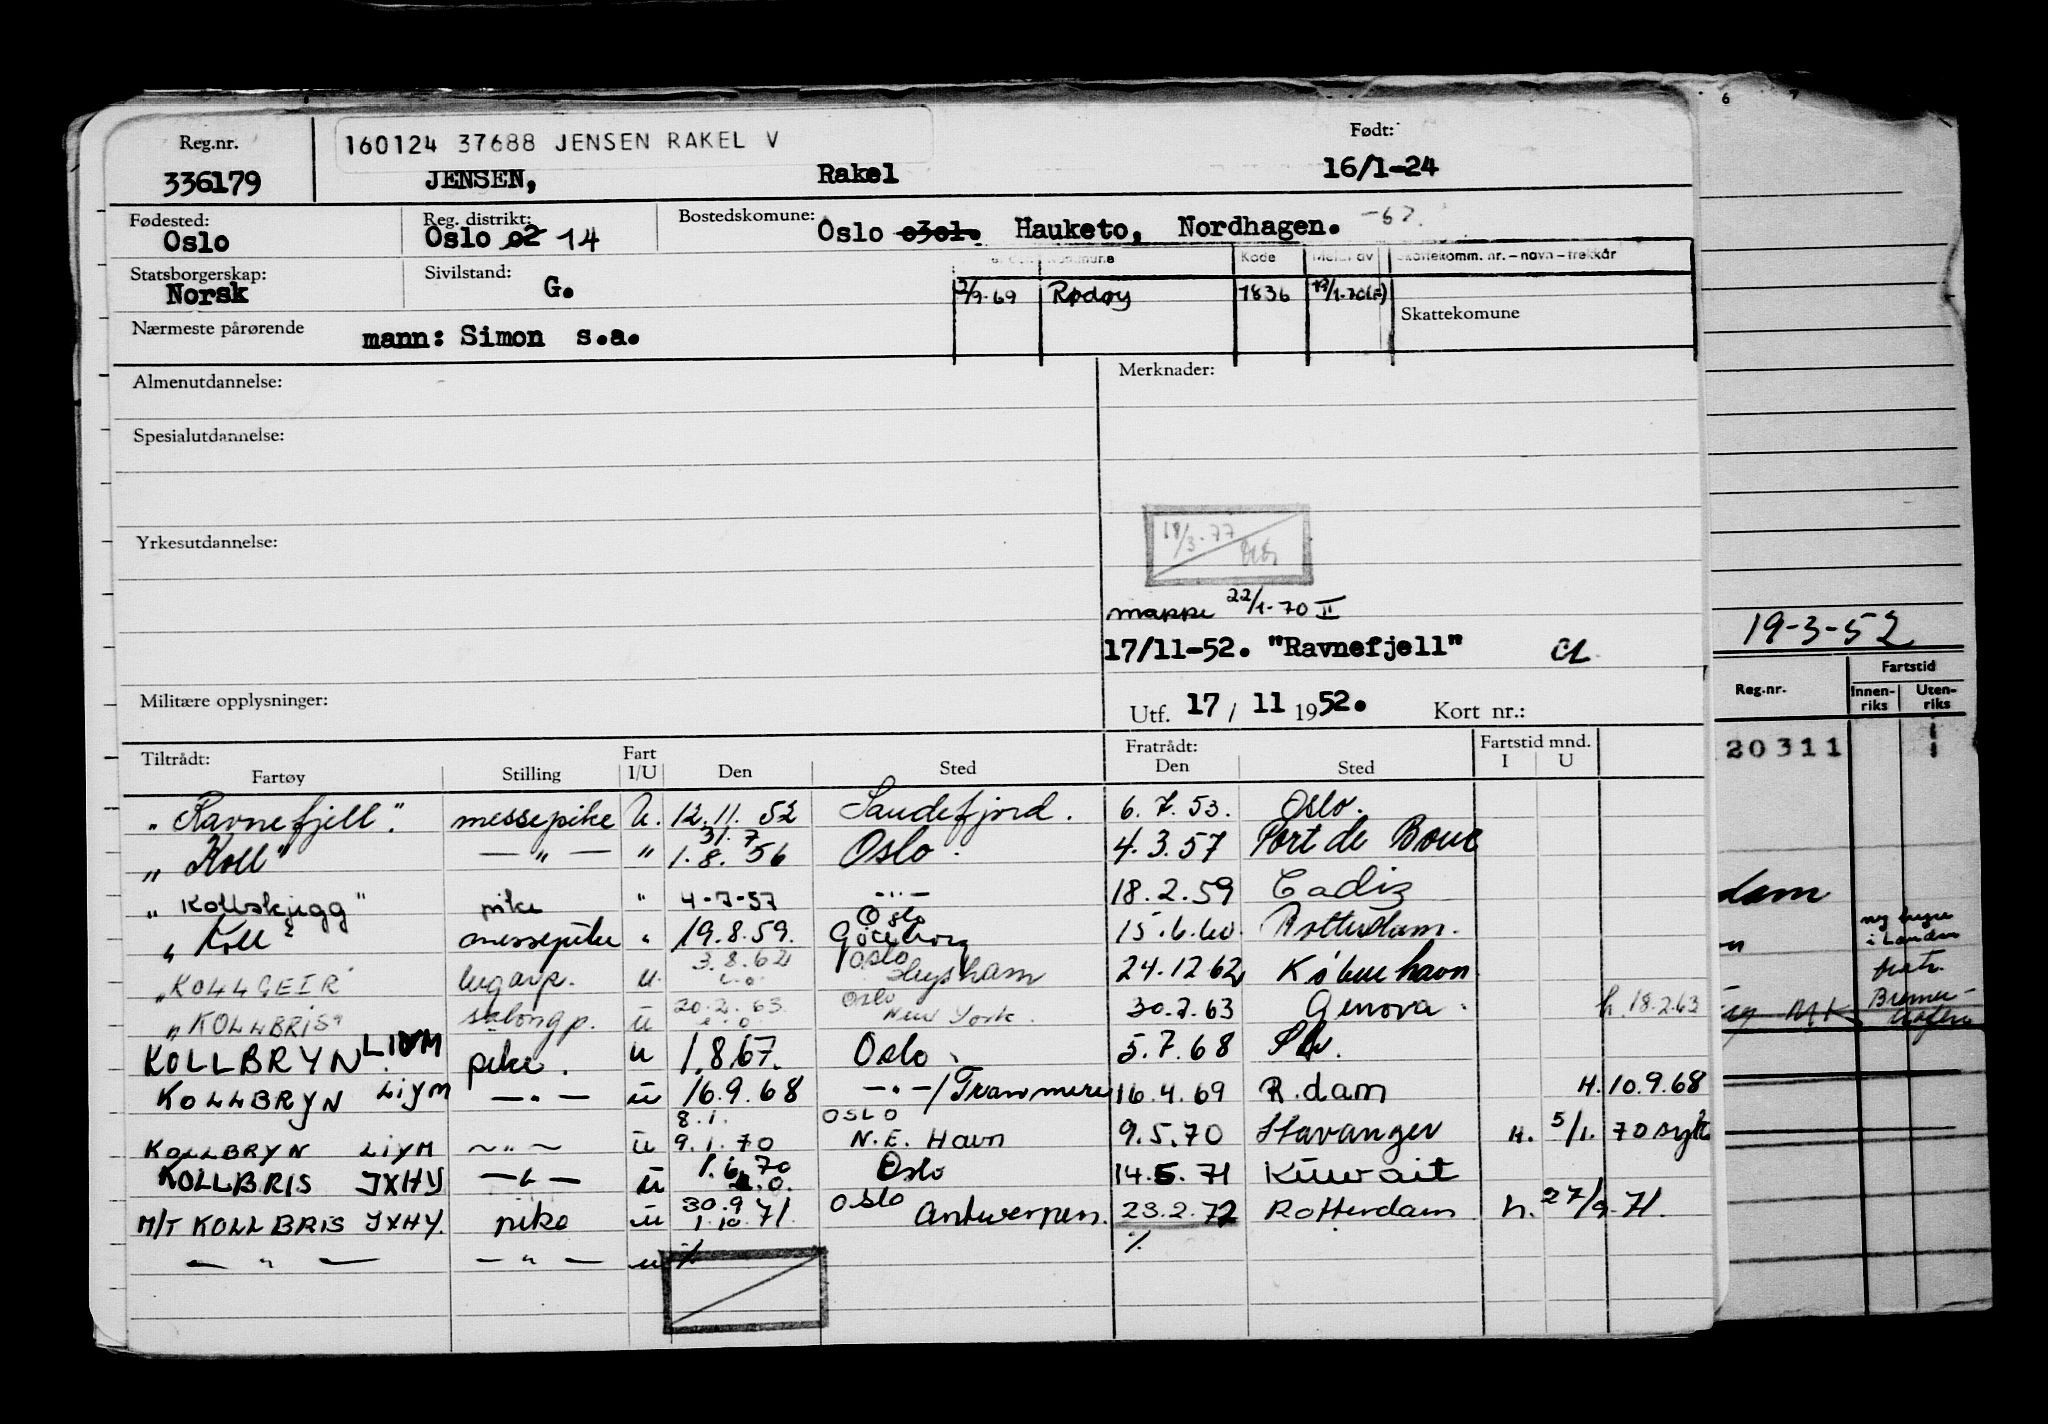 Reg.nr. 160124 37688 JENSEN RAKEL V Født:
336179 JENSEN, Rakel 16/1-24
Fødested: Reg. distrikt: Bostedskomune:
Oslo Oslo 02 14 Oslo 0301. Hauketo, Nordhagen. -67.
Statsborgerskap: Sivilstand: Kode Skattekomm. nr. - navn - trekkår
Norsk G. 2/9-69 Rødøy 1836
Skattekomune
Nærmeste pårørende mann: Simon s.a.
Almenutdannelse: Merknader:
Spesialutdannelse:
Yrkesutdannelse: 18/3-77
mappe 22/1-70 II
17/11-52. "Ravnefjell"
Militære opplysninger: Utf. 17 / 11 1952. Kort nr.:
Tiltrådt: Fart Fratrådt: Fartstid mnd.
Fartøy Stilling I/U Den Sted Den Sted I U
"Ravnefjell". messepike U. 12.11.52 Sandefjord. 6.7.53. Oslo.
31.7
"Koll" — " — " 1.8.56 Oslo. 4.3.57 Port de Bouc
"Kollskjegg" pike " 4-7-57 — " — 18.2.59 Cadiz
Oslo
"Koll" messepike " 19.8.59. Göteborg 15.6.60. Rotterdam.
3.8.62 Oslo
"KOLLGEIR" lugarp. u. Heysham 24.12 62 København
20.2.63. Oslo
"KOLLBRIS" salongp. u New York. 30.7.63 Genova. h. 18.2.63
KOLLBRYN LIYM pike. u 1.8.67. Oslo. 5.7.68
KOLLBRYN LIYM — " — u 16.9.68 — " — / Tranmere 16.4.69 R.dam H. 10.9.68
8.1. OSLO
KOLLBRYN LIYM — " — u 9.1.70 N.E. Havn 9.5.70 Stavanger H. 5/1. 70 syk
KOLLBRIS JXHY — " — u 1.6.70 Oslo 14.5.71 Kuwait
30.9 OSLO
M/T KOLLBRIS JXHY. pike u 1.10.71. Antwerpen. 23.2.72 Rotterdam h. 27/9.71.
— " — — " — u % %
6 7
19-3-52
Reg.nr. Fartstid
Innenriks Utenriks
20311
dam